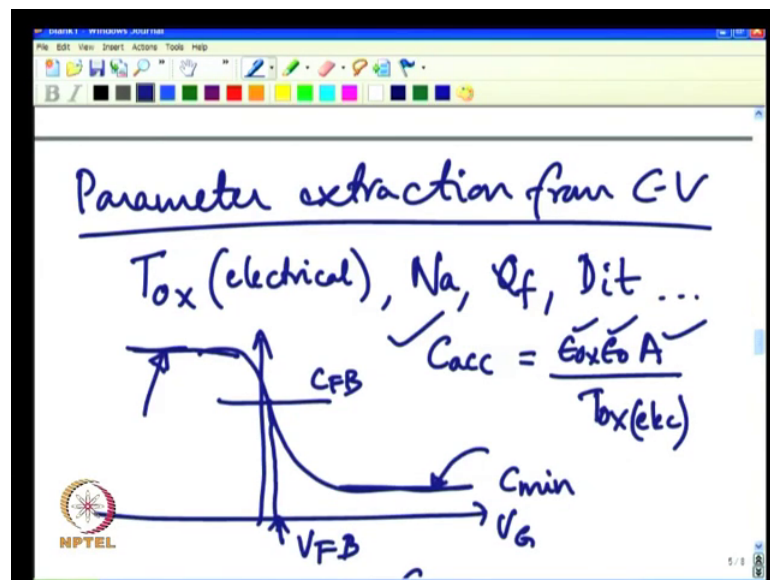 blank1 - Windows Journal
File Edit View Insert Actions Tools Help
B I
Parameter extraction from C-V
Tox (electrical), Na, Qf, Dit ...
Cacc = ϵox ϵ0 A / Tox(elec)
CFB
Cmin
VFB
VG
NPTEL
5/8